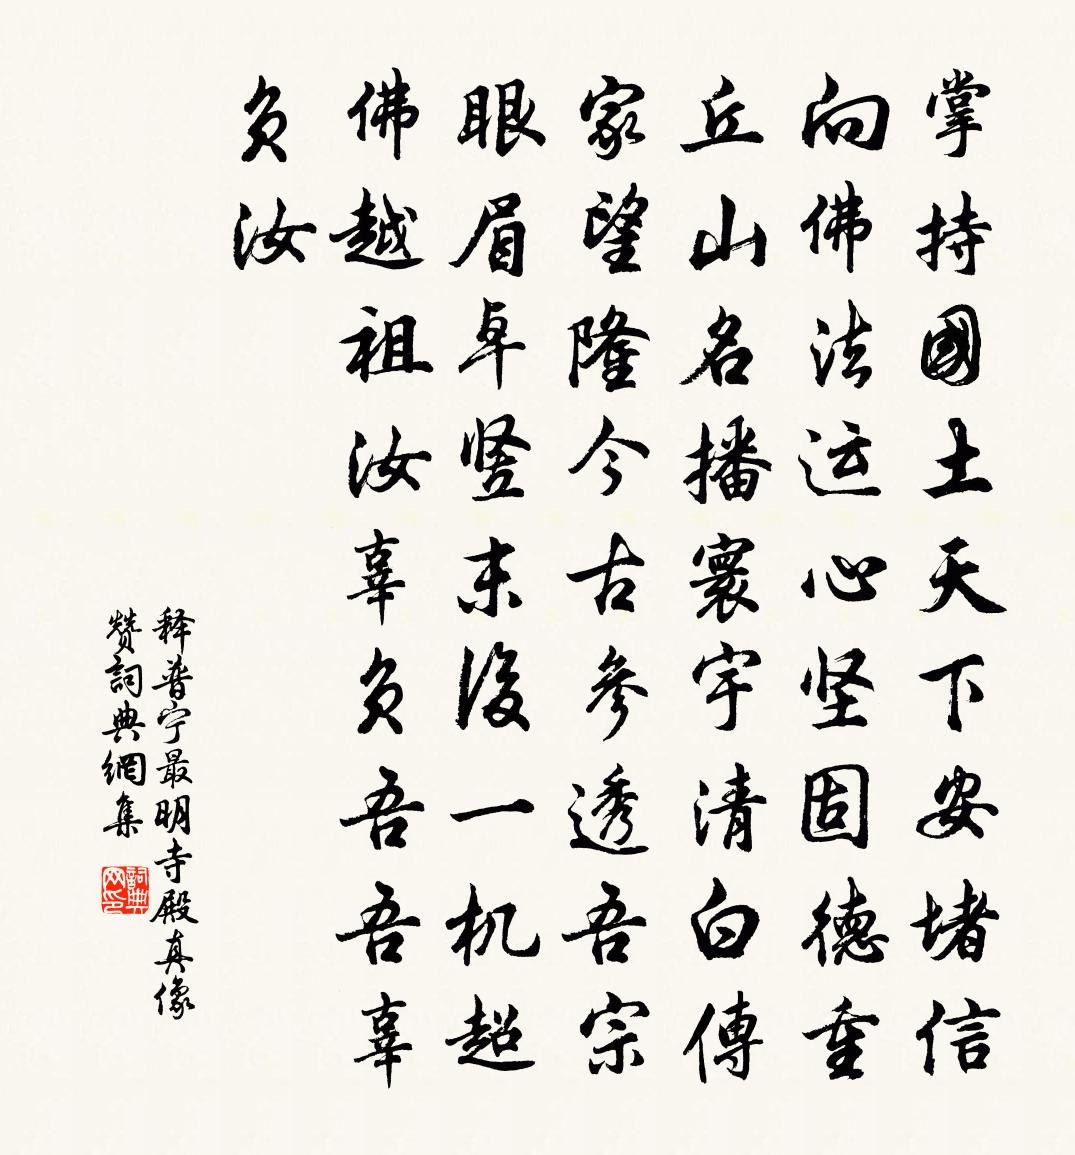 掌持國土天下安堵信
向佛法运心坚固德重
丘山名播寰宇清白傳
家望隆今古參透吾宗
眼眉卓竖末後一机超
佛越祖汝辜负吾吾辜
负汝
释普宁最明寺殿真像
赞詞典網集
詞典
网印